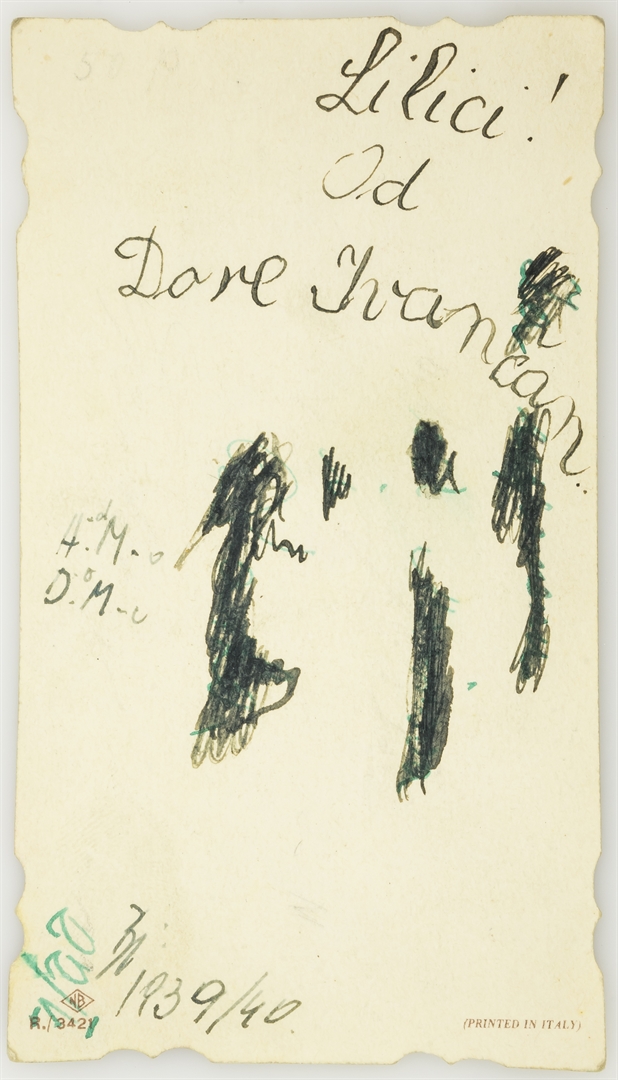 Lilici!
Od
Dore Ivančan.
1939/40.
NB
R./3421
(PRINTED IN ITALY)